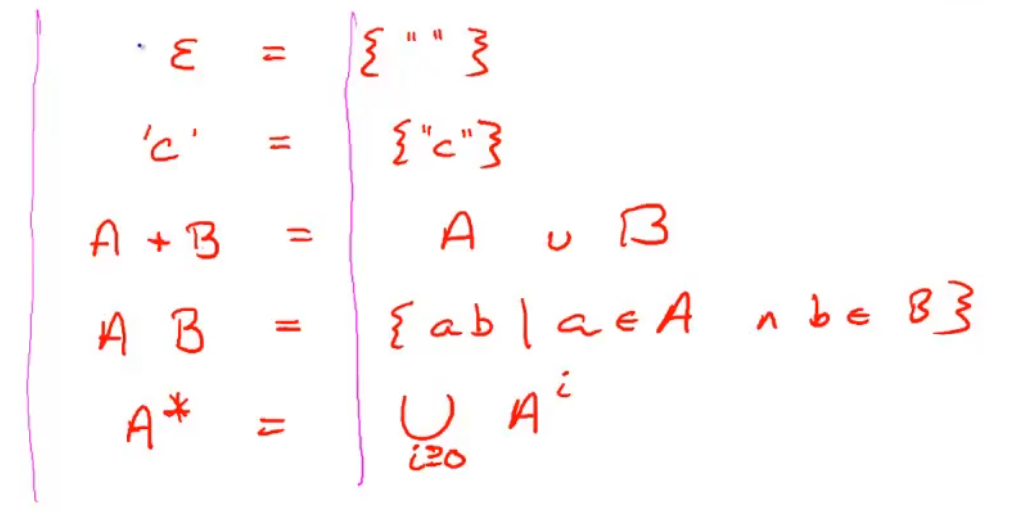 ε = {" "}
'c' = {"c"}
A + B = A ∪ B
A B = {ab | a ∈ A ∧ b ∈ B}
A* = ⋃_{i≥0} A^i